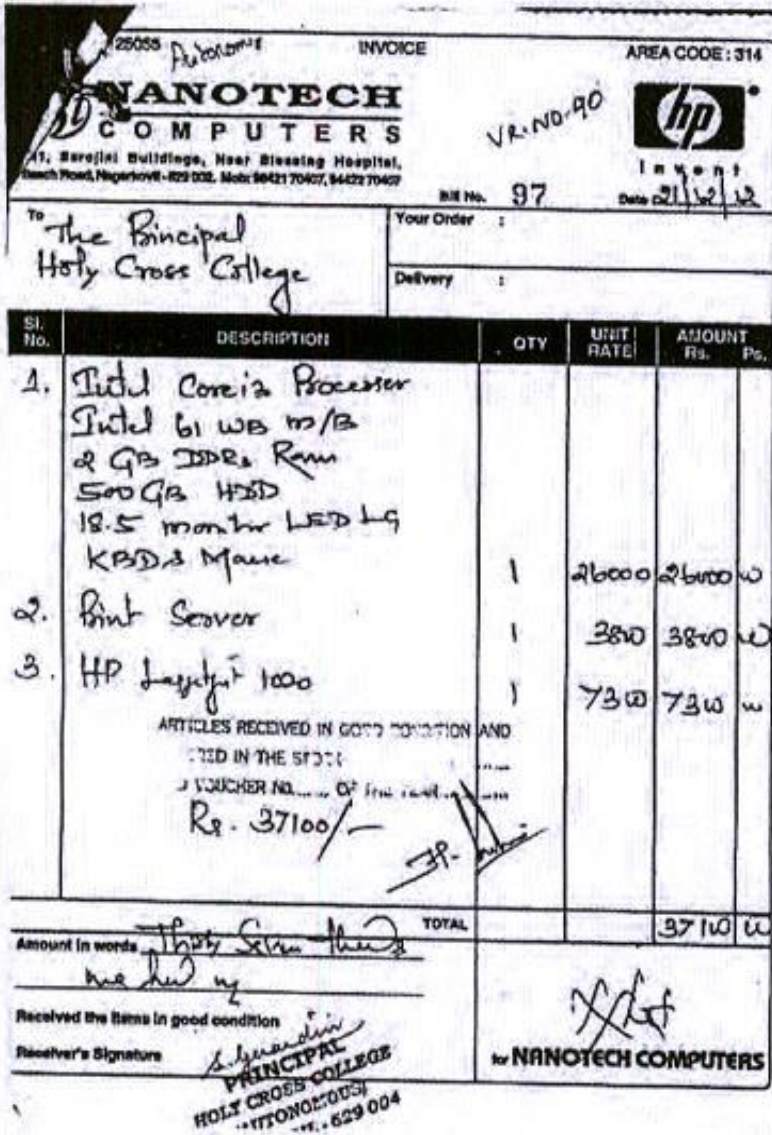 25055 INVOICE AREA CODE : 314
NANOTECH
COMPUTERS
VR.NO-90
hp
invent
Sarojini Buildings, Near Blessing Hospital,
Beach Road, Nagercoil - 629 002. Mob: 94421 70407, 94422 70407
Bill No. 97 Date 21/12/12
To The Principal
Holy Cross College
Your Order :
Delivery :
Sl. No. DESCRIPTION QTY UNIT RATE AMOUNT Rs. Ps.
1. Intel Core i3 Processer
Intel 61 WB M/B
2 GB DDR3 Ram
500 GB HDD
18.5 monitor LED LG
KBD & Mouse 1 26000 26000 00
2. Print Server 1 3800 3800 00
3. HP Laserjet 1000 1 7300 7300 00
ARTICLES RECEIVED IN GOOD CONDITION AND
IN THE STOCK
VOUCHER NO...... OF THE YEAR
Rs. 37100/-
TOTAL 37100 00
Amount in words Thirty Seven thousand
one hundred
Received the items in good condition
Receiver's Signature
PRINCIPAL
HOLY CROSS COLLEGE
AUTONOMOUS
629 004
for NANOTECH COMPUTERS